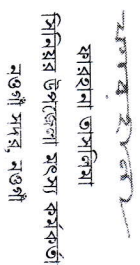 ফারহানা তাসলিমা
সিনিয়র উপজেলা মৎস্য কর্মকর্তা
নওগাঁ সদর, নওগাঁ